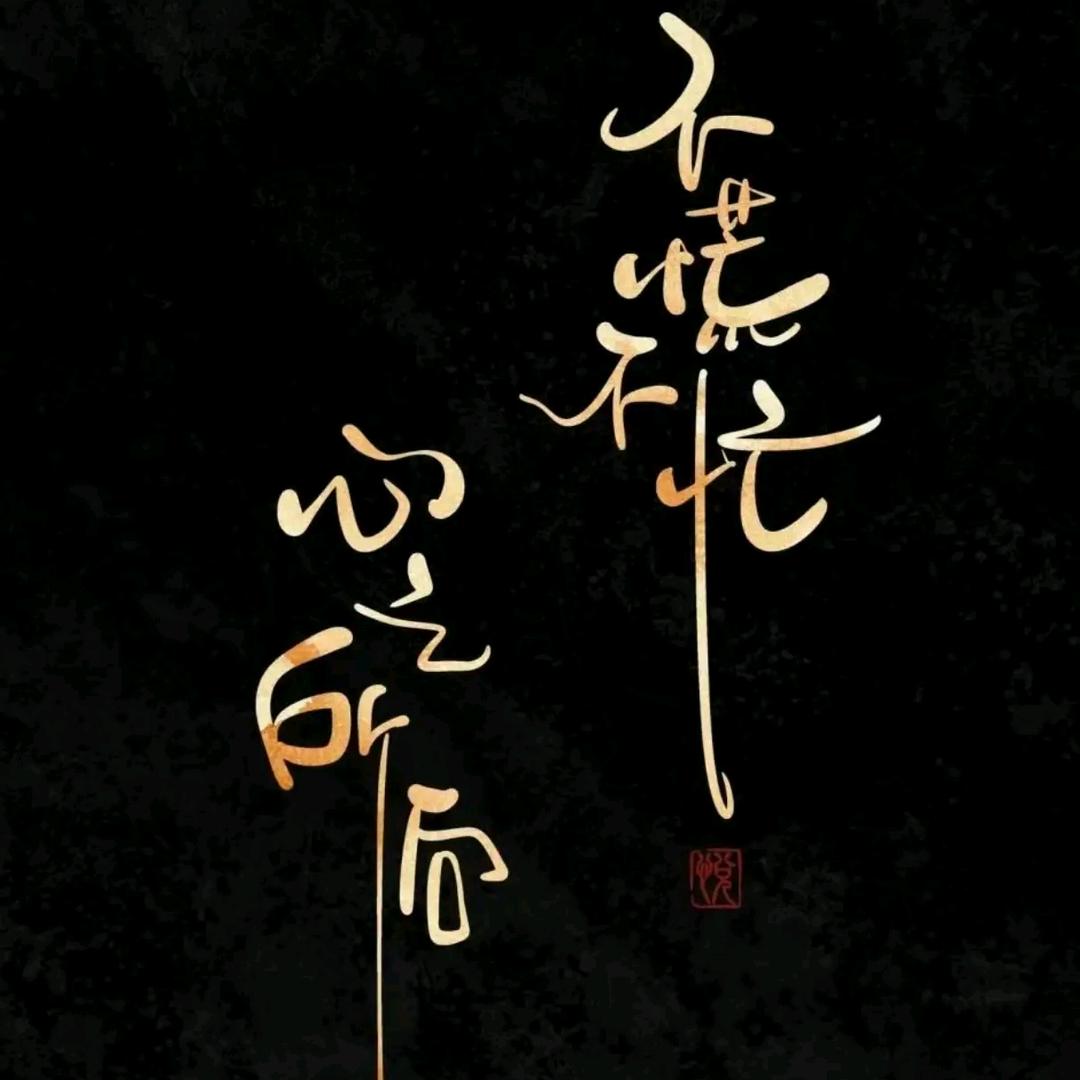 不慌不忙
心之所向
悦